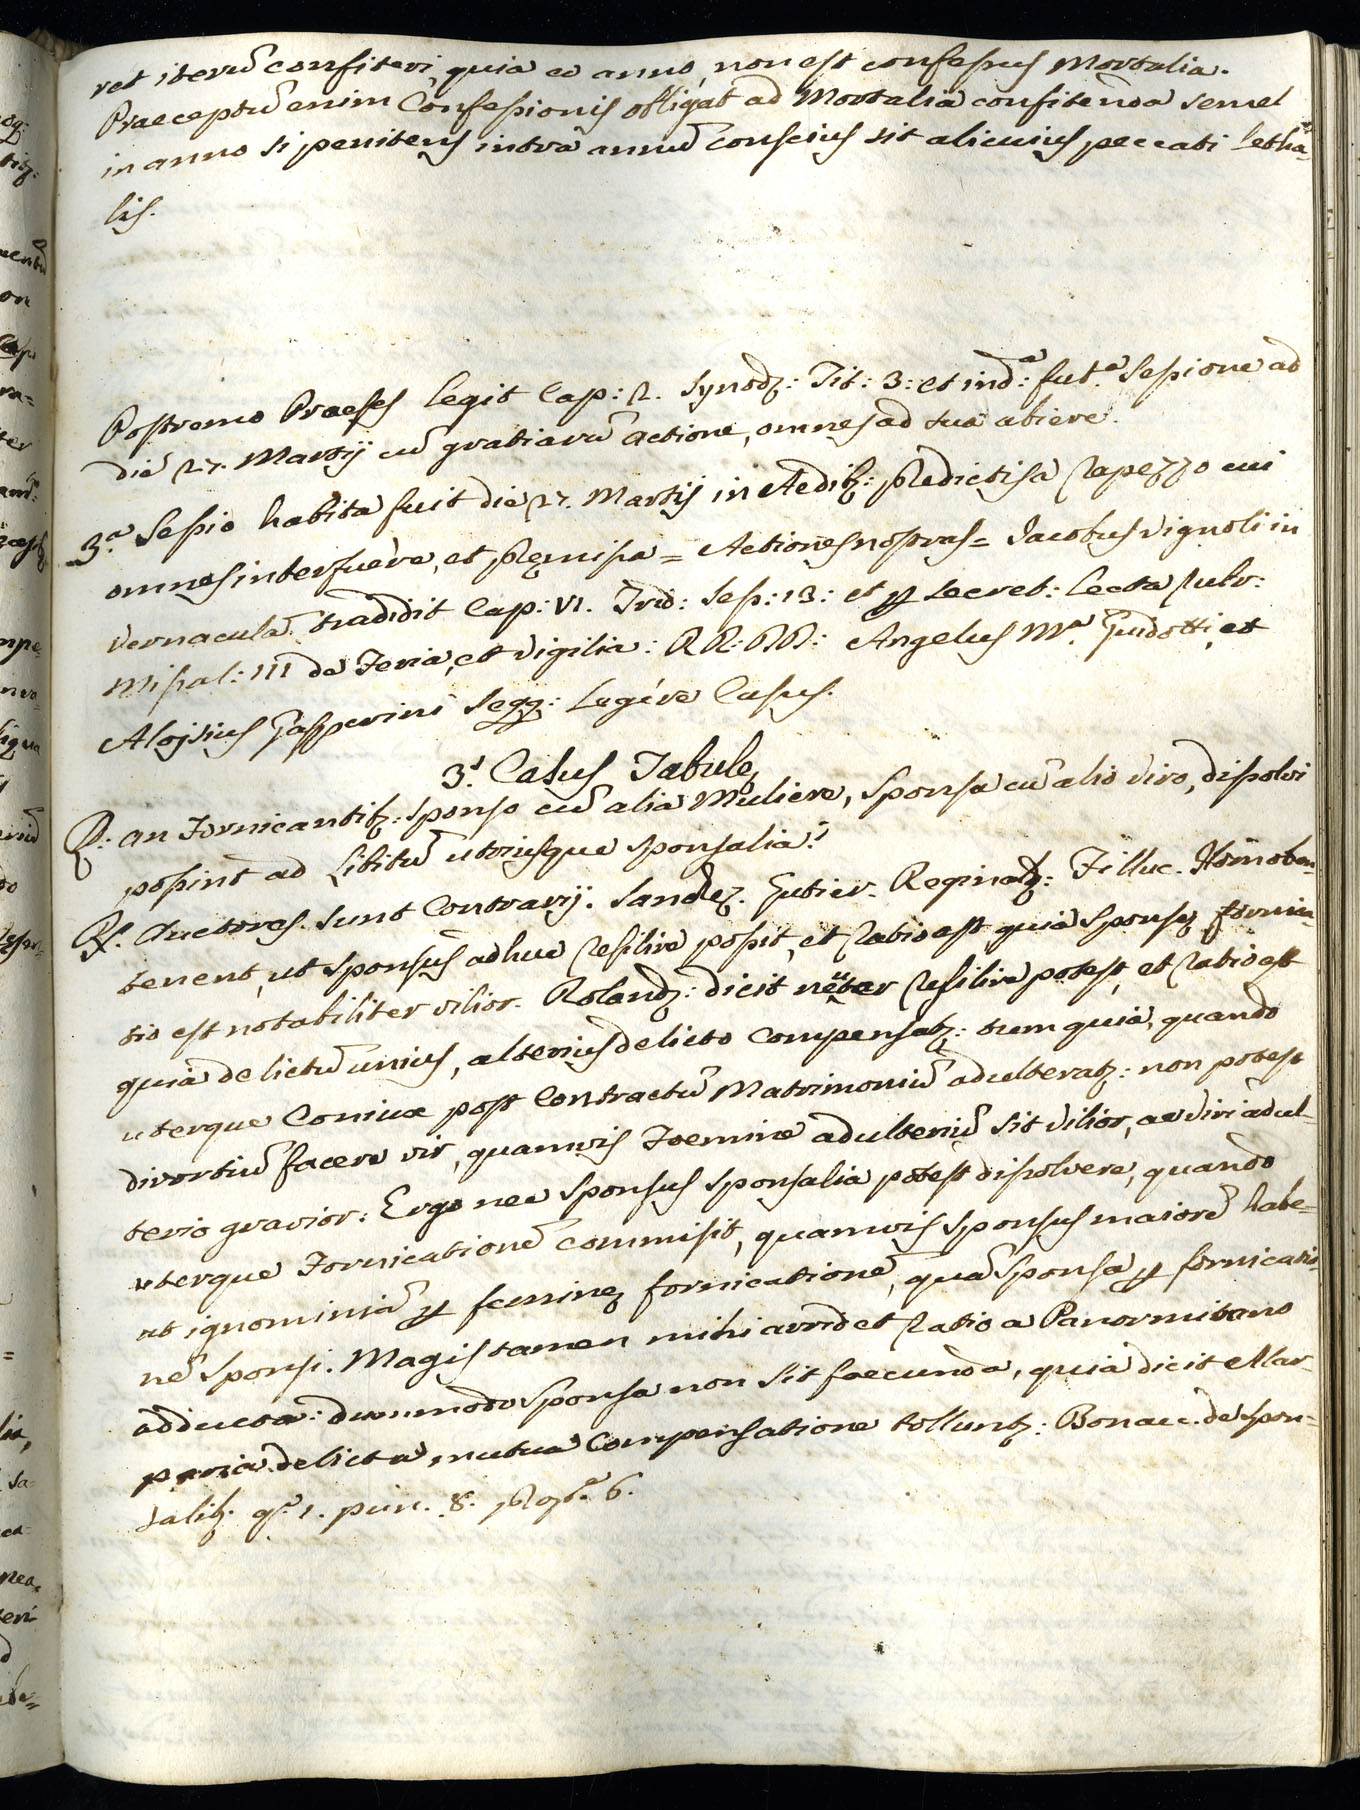 ret iterũ confiteri, quia eo anno, non est confessus Mortalia.
Praeceptũ enim Confessionis obligat ad Mortalia confitenda semel
in anno si penitens intra annũ conscius sit alicuius peccati letha-
lis.
Postremo Praeses legit Cap: 2. Synodj: Tit: 3: et ind:ᵃ fut.ᵃ Sessione ad
die 27. Martij cũ gratiarũ actione, omnes ad sua abiere.
3.ᵃ Sessio habita fuit die 27. Martij in Aedibz: predictis a Rapezzo cui
omnes interfuere, et premissa = Actiones nostras = Jacobus Vignoli in
Vernaculã tradidit Cap: VI. Trid: Sess: 13: et p Secret: Lecta Rubr:
Missal: III de Feria, et Vigilia: RR: PP: Angelus M.ᵃ Guidotti, et
Aloysius Gasperini Seqq: Legére Casus.
3.ˢ Casus Tabulę
Q: an Fornicantibz: sponso cũ alia Muliere, Sponsa cũ alio viro, dissolvi
possint ad Libitũ utriusque sponsalia?
R. Auctores sunt Contrarij. Sanchez. Gutier. Reginald: Filluc. Homobon
tenent, ut sponsus adhuc resilire possit, et ratio est quia sponsę fornica-
tio est notabiliter vilior. Roland: dicit neuter resilire potest, et ratio est
quia delictũ unius, alterius delicto compensatz: tum quia, quando
uterque Coniux post Contractũ Matrimoniũ adulteratz: non potest
divortiũ facere vir, quamvis Foeminae adulteriũ sit vilior, ac viri adul-
terio gravior: Ergo nec Sponsus sponsalia potest dissolvere, quando
uterque Fornicationẽ commisit, quamvis sponsus maiorẽ habe-
at ignominiã p feminę fornicationẽ, quã Sponsa p fornicatio-
nẽ Sponsi. Magis tamen mihi arridet ratio a Panormitano
adducta: dummodo Sponsa non sit faecunda, quia dicit Mar-
paria delicta, mutua Compensatione tolluntz: Bonac. de Spon-
salibz. q.ᵃ 1. pun. 8. prop.ᵉ 6.